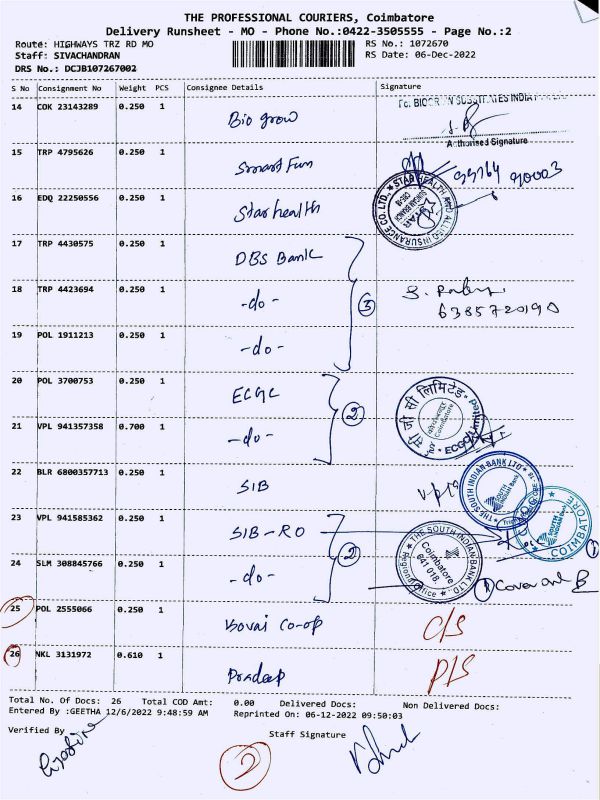 THE PROFESSIONAL COURIERS, Coimbatore
Delivery Runsheet - MO - Phone No.:0422-3505555 - Page No.:2
Route: HIGHWAYS TRZ RD MO
RS No.: 1072670
Staff: SIVACHANDRAN
RS Date: 06-Dec-2022
DRS No.: DCJB107267002
S No Consignment No Weight PCS Consignee Details Signature
14 COK 23143289 0.250 1 Bio grow
Authorised Signature
15 TRP 4795626 0.250 1 Smart Fun
16 EDQ 22250556 0.250 1 Star health
STAR HEALTH AND ALLIED INSURANCE CO. LTD.
17 TRP 4430575 0.250 1 DBS Bank
18 TRP 4423694 0.250 1 -do- 3
6385720190
19 POL 1911213 0.250 1 -do-
20 POL 3700753 0.250 1 ECGC 2
ई सी जी सी लिमिटेड
ECGC Limited
Coimbatore
21 VPL 941357358 0.700 1 -do-
22 BLR 6800357713 0.250 1 SIB
THE SOUTH INDIAN BANK LTD
SOUTH INDIAN Bank
23 VPL 941585362 0.250 1 SIB-RO 2
COIMBATORE
THE SOUTH INDIAN BANK LTD.
Regional Office
Coimbatore
641 018
24 SLM 308845766 0.250 1 -do-
25 POL 2555066 0.250 1 Kovai Co-op C/S
26 NKL 3131972 0.610 1 Pradeep P/S
Total No. Of Docs: 26 Total COD Amt: 0.00 Delivered Docs: Non Delivered Docs:
Entered By :GEETHA 12/6/2022 9:48:59 AM Reprinted On: 06-12-2022 09:50:03
Verified By
Staff Signature
2